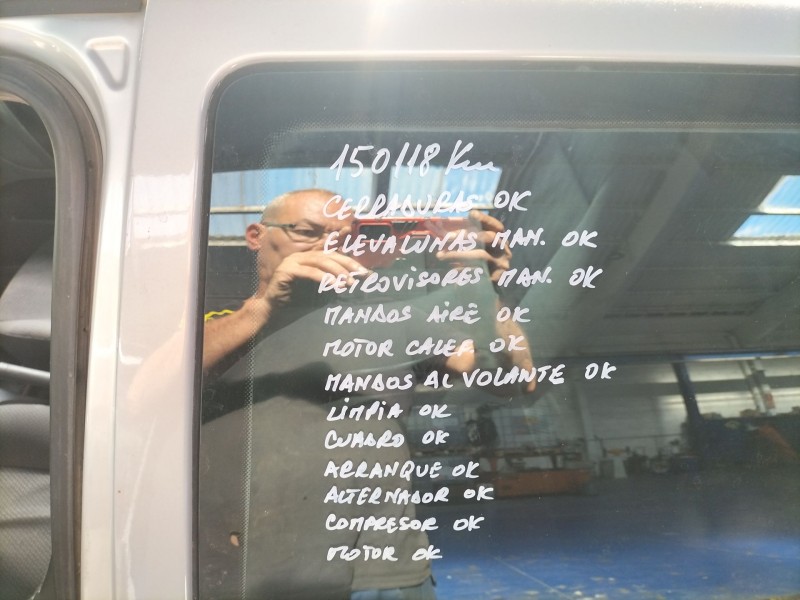 150118 Km
CERRADURAS OK
ELEVALUNAS MAN. OK
RETROVISORES MAN. OK
MANDOS AIRE OK
MOTOR CALEF. OK
MANDOS AL VOLANTE OK
LIMPIA OK
CUADRO OK
ARRANQUE OK
ALTERNADOR OK
COMPRESOR OK
MOTOR OK